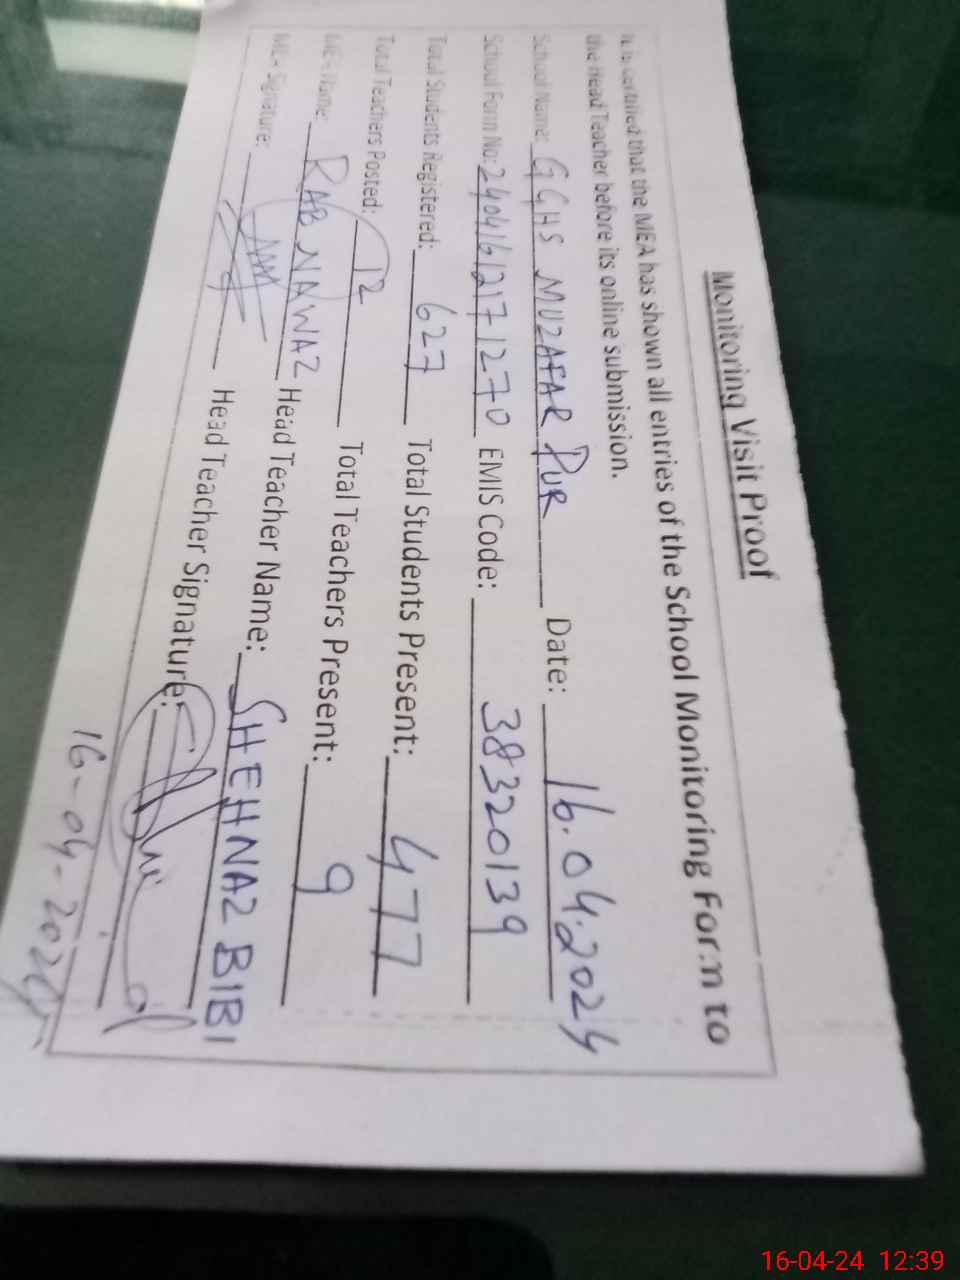 Monitoring Visit Proof
It is certified that the MEA has shown all entries of the School Monitoring Form to
the Head Teacher before its online submission.
School Name: GGHS MUZAFAR PUR Date: 16.04.2024
School Form No: 24041612171270 EMIS Code: 38320139
Total Students Registered: 627 Total Students Present: 477
Total Teachers Posted: 12 Total Teachers Present: 9
MEA Name: RAB NAWAZ Head Teacher Name: SHEHNAZ BIBI
MEA Signature: Head Teacher Signature:
16-04-2024
16-04-24 12:39